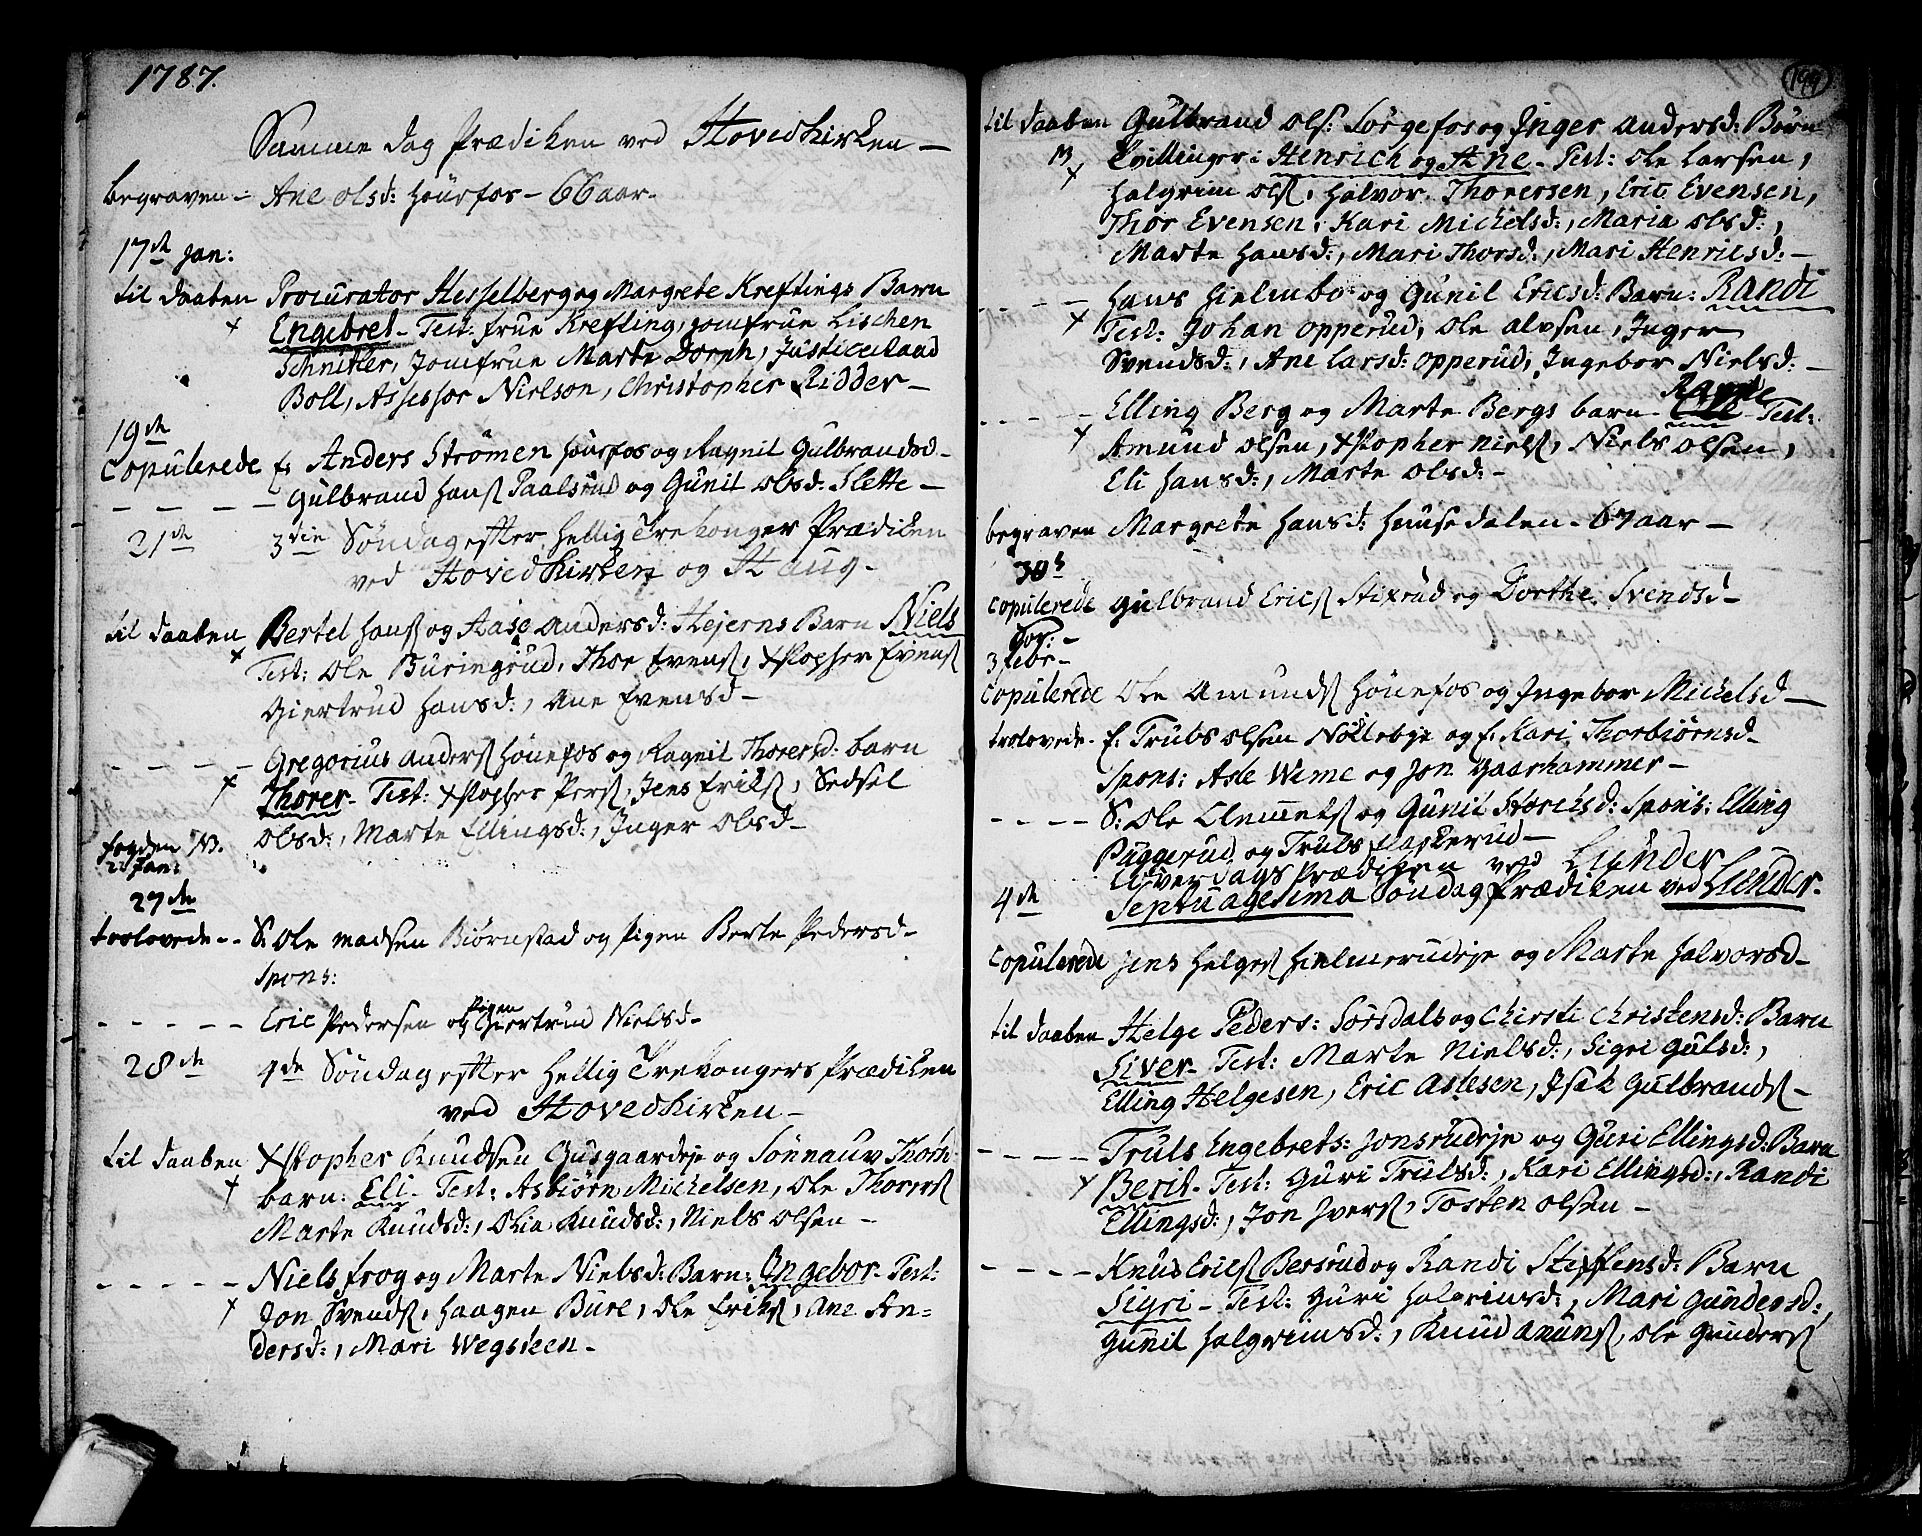 1787.
Samme dag Prædiken ved Hovedkirken —
begraven — Ane Olsd: Hönefos — 66 aar.
17de Jan:
til daaben Procurator Hesselberg og Margrete Kreftings Barn
+ Engebret — Test: frue Krefting, jomfrue Lischen
Schnitler, Jomfrue Marte Dorph, Justiceraad
Boll, Assessor Nielson, Christopher Ridder —
19de
Copulerede f: Anders Strömen Hönefos og Ragnil Gulbrandsd —
— — — — Gulbrand Hans Paalsrud og Gunil Olsd: Slette —
21de 3die Söndag efter Hellig Tre konger Prædiken
ved Hovedkirken og Haug —
til daaben Bertel Hans og Aase Andersd: Hejerns Barn Niels
+ Test: Ole Buringrud, Thor Evens, Xstopher Evens
Giertrud Hansd:, Ane Evensd —
— — — — Gregorius Anders Hönefos og Ragnil Thorersd: barn
+ Thorer — Test: Xstopher Pers, Jens Eriks, Sedsel
Olsd:, Marte Ellingsd:, Inger Olsd —
27de
trolovede — S: Ole Madsen Biörnstad og Pigen Berte Pedersd —
Spons:
— — — — Eric Pedersen og Pigen Giertrud Nielsd —
28de 4de Söndag efter Hellig Tre kongers Prædiken
ved Hovedkirken —
til daaben Xstopher Knudsen Gusgaardeje og Sönnauv Thorb:
+ barn: Eli — Test: Asbiörn Michelsen, Ole Thorers
Marte Knudsd:, Olia Knudsd:, Niels Olsen —
— — — — — Niels frog og Marte Nielsd: Barn: Ingebor — Test:
+ Jon Svends, Haagen Bure, Ole Eriks, Ane An=
dersd:, Mari Wegsteen —
199
til daaben Gulbrand Ols: Sörgefos og Inger Andersd: Börn
+ Tvillinger: Henrich og Ane — Test: Ole Larsen,
Halgrim Ols, Halvor Thorersen, Eric Evensen,
Thor Evensen, Kari Michelsd:, Maria Olsd:,
Marte Hansd:, Mari Thorsd:, Mari Henricsd: —
— — — — Hans Hielmbo og Gunil Ericsd: Barn: Randi
+ Test: Johan Opperud, Ole Alvsen, Inger
Svendsd:, Ane Larsd: Opperud, Ingebor Nielsd: —
— — — — Elling Berg og Marte Bergs barn Test:
+ Amund Olsen, Xstopher Niels, Niels Olsen,
Eli Hansd:, Marte Olsd: —
begraven Margrete Hansd: Hensedalen — 67 aar —
30
Copulerede Gulbrand Erics Stixrud og Dorthe Svendsd —
3 Febr —
Copulerede Ole Amunds Hönefos og Ingebor Michelsd —
trolovede — f. Truls Olsen Nöklebye og f. Kari Thorbiörnsd —
Spons: Asle Weme og Jon Gaarhammer —
— — — — S: Ole Clemets og Gunil Storchsd: Spons: Elling
Puggerud og Truls Flaskerud —
Prædiken ved Lunder
4de Septuagesima Söndag Prædiken ved Lunder —
Copulerede Jens Helges Hielmerudeje og Marte Halvorsd —
til daaben Helge Peders: Sörsdals og Chirsti Christensd: Barn
Siver — Test: Marte Nielsd:, Sigri Gulsd:,
Elling Helgesen, Eric Aslesen, Isak Gulbrands —
— — — — Truls Engebrets: Jonsrudeje og Guri Ellingsd: Barn
+ Berit — Test: Guri Trulsd:, Kari Ellingsd:, Randi
Ellingsd:, Jon Ivers, Tosten Olsen —
— — — — Knud Erics Bersrud og Randi Steffensd: Barn
Sigri — Test: Guri Halgrimsd:, Mari Gundersd:,
Gunil Halgrimsd:, Knud Anuns, Ole Gunders